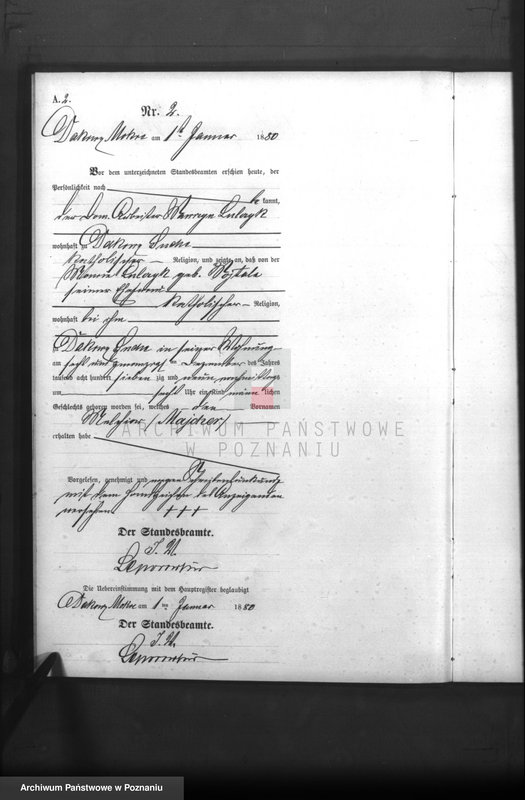 A. 2.
Nr. 2.
Dakowy Mokre am 1ten Januar 1880
Vor dem unterzeichneten Standesbeamten erschien heute, der
Persönlichkeit nach be kannt,
der Dom. Arbeiter
wohnhaft zu Dakowy Suche
katholischer Religion, und zeigte an, daß von der
geb. Wojtala
seiner Ehefrau
katholischer Religion,
wohnhaft bei ihm
zu Dakowy Suche in seiner Wohnung
am sechs und zwanzigsten Dezember des Jahres
tausend acht hundert sieben zig und neun, nachmittags
um sechs Uhr ein Kind männ lichen
Geschlechts geboren worden sei, welches den Vornamen
Melchior (Majcher)
erhalten habe
Vorgelesen, genehmigt und wegen Schreibensunkunde
mit dem Handzeichen des Anzeigenden
versehen +++
Der Standesbeamte.
Die Uebereinstimmung mit dem Hauptregister beglaubigt
Dakowy Mokre am 1ten Januar 1880
Der Standesbeamte.
ARCHIWUM PAŃSTWOWE
W POZNANIU
Archiwum Państwowe w Poznaniu